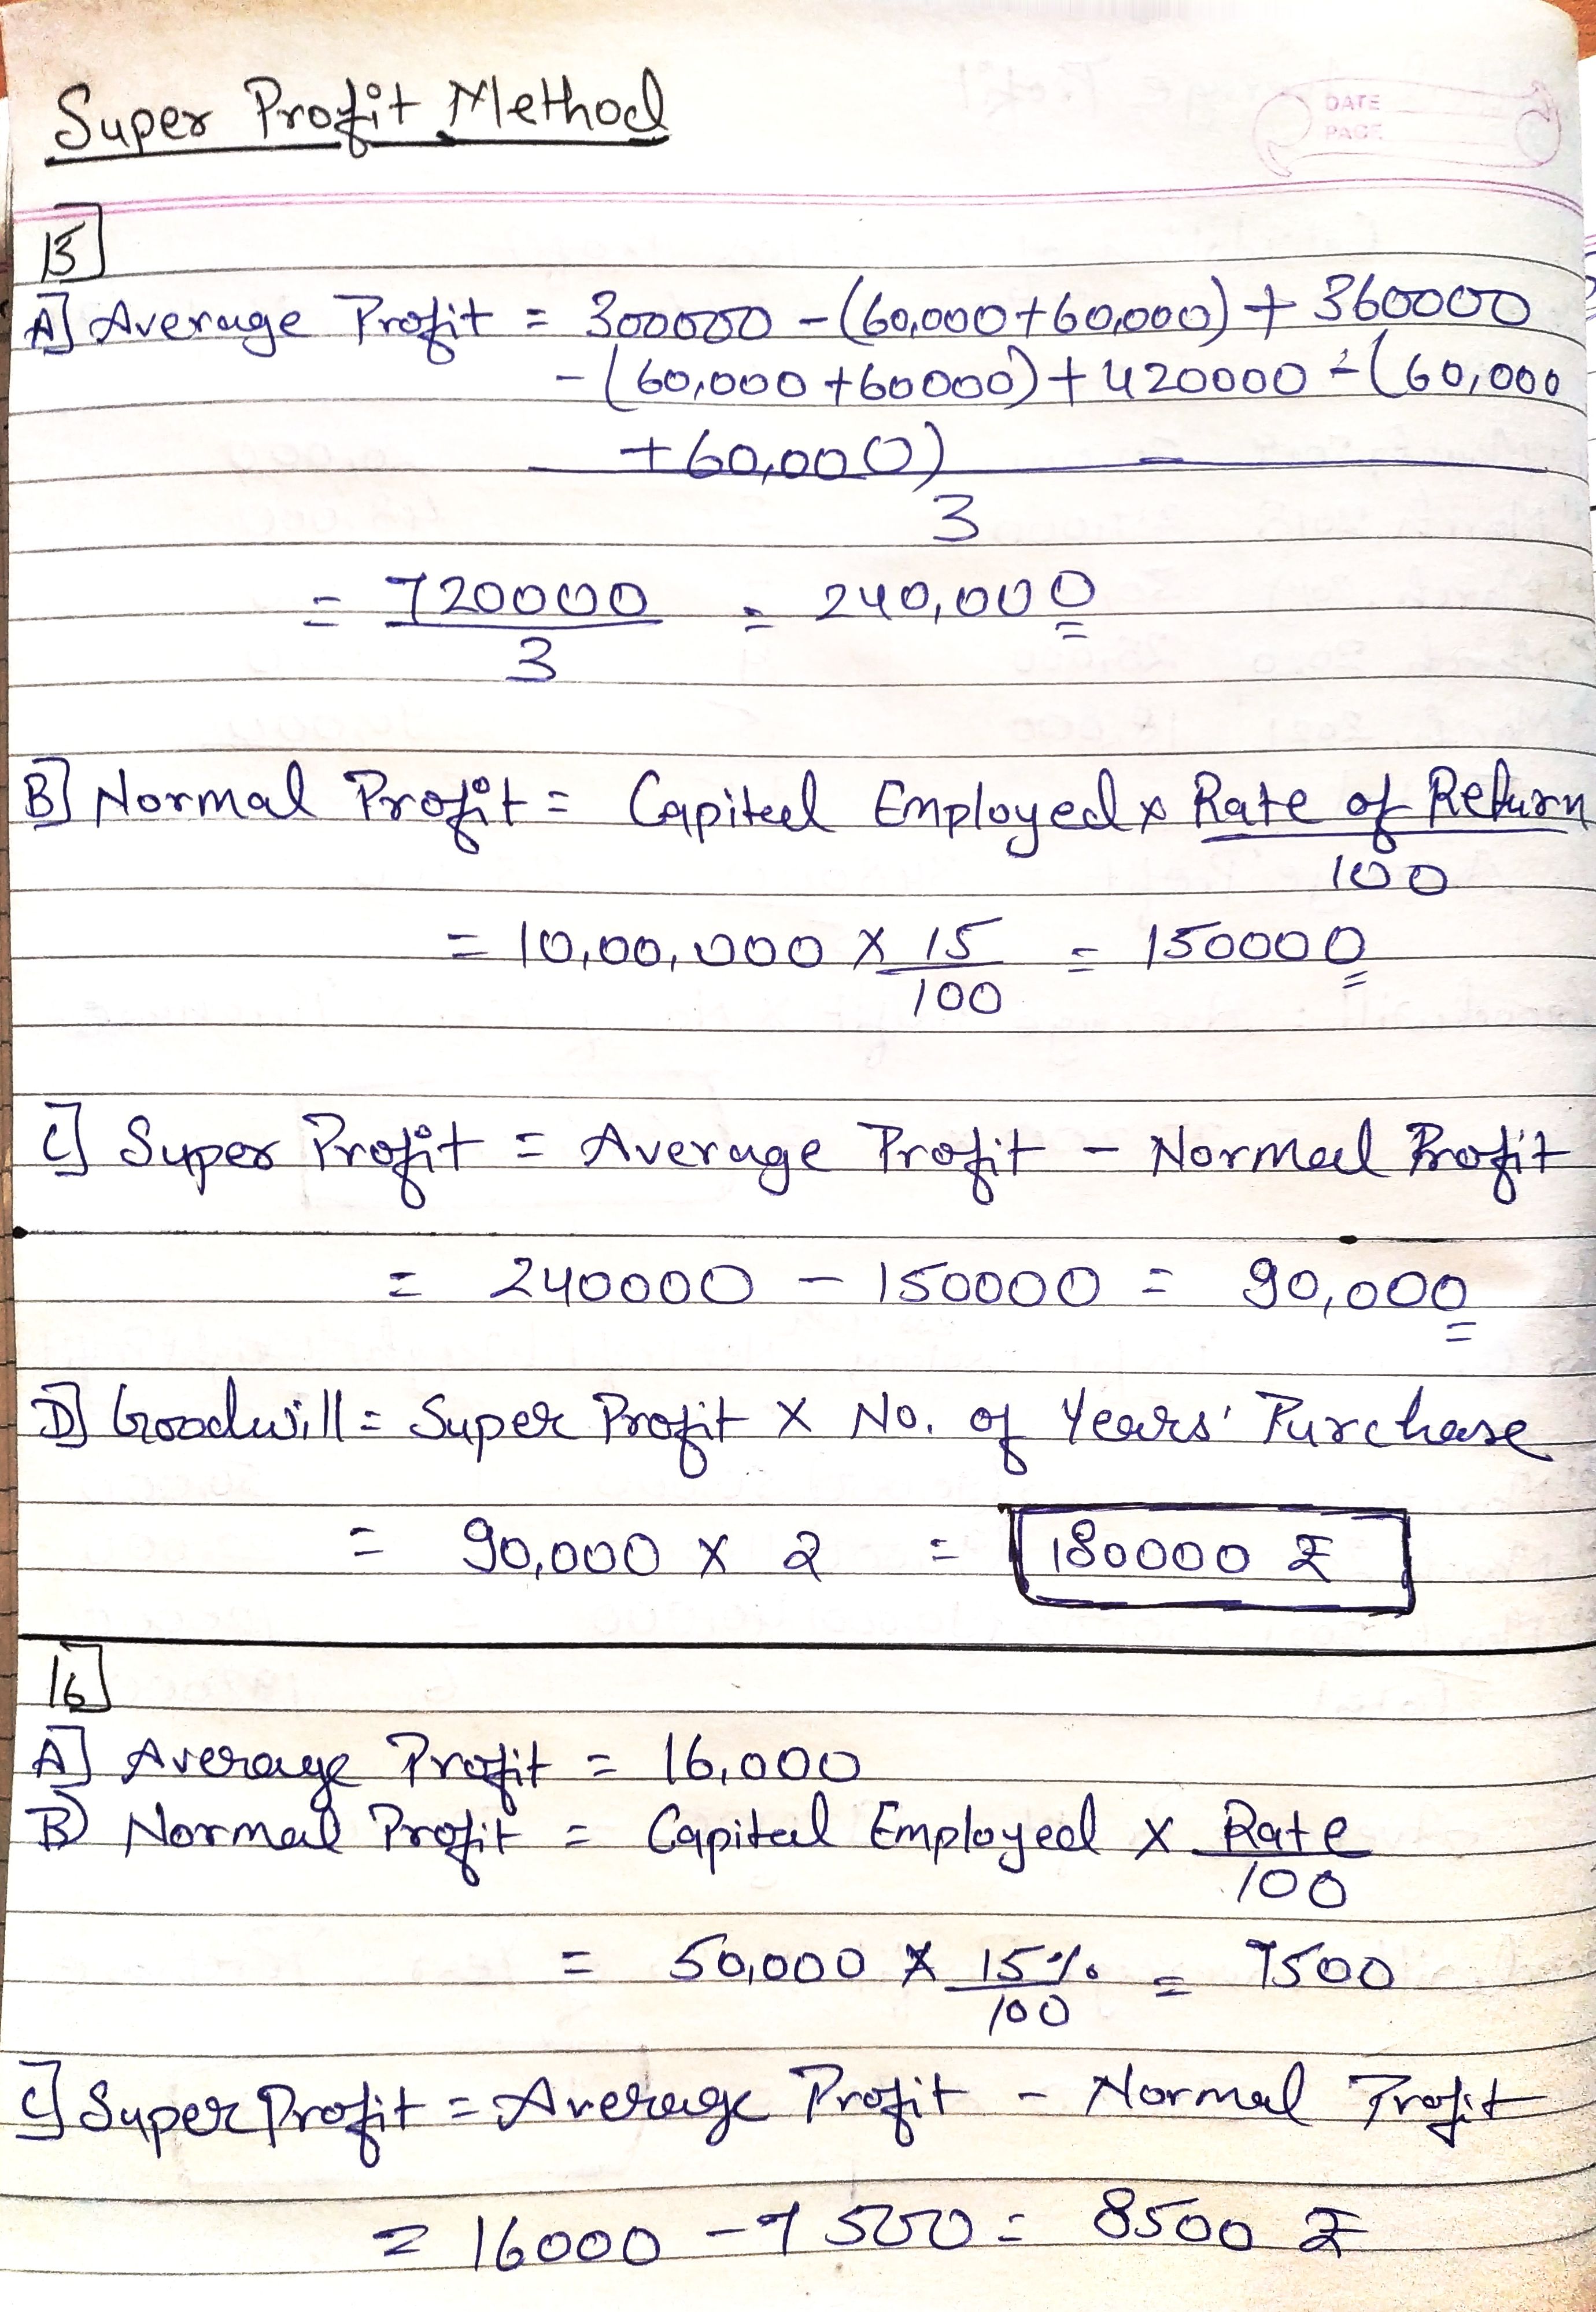 Super Profit Method
DATE
PAGE
15
A] Average Profit = 300000 - (60,000+60,000) + 360000
- (60,000 +60000) + 420000 - (60,000
+60,000)
3
= 720000 = 240,000
3
B] Normal Profit = Capital Employed x Rate of Return
100
= 10,00,000 X 15 = 150000
100
C] Super Profit = Average Profit - Normal Profit
= 240000 - 150000 = 90,000
D] Goodwill = Super Profit X No. of Years' Purchase
= 90,000 X 2 = 180000 ₹
16
A] Average Profit = 16,000
B) Normal Profit = Capital Employed X Rate
100
= 50,000 X 15% = 7500
100
C] Super Profit = Average Profit - Normal Profit
= 16000 - 7500 = 8500 ₹